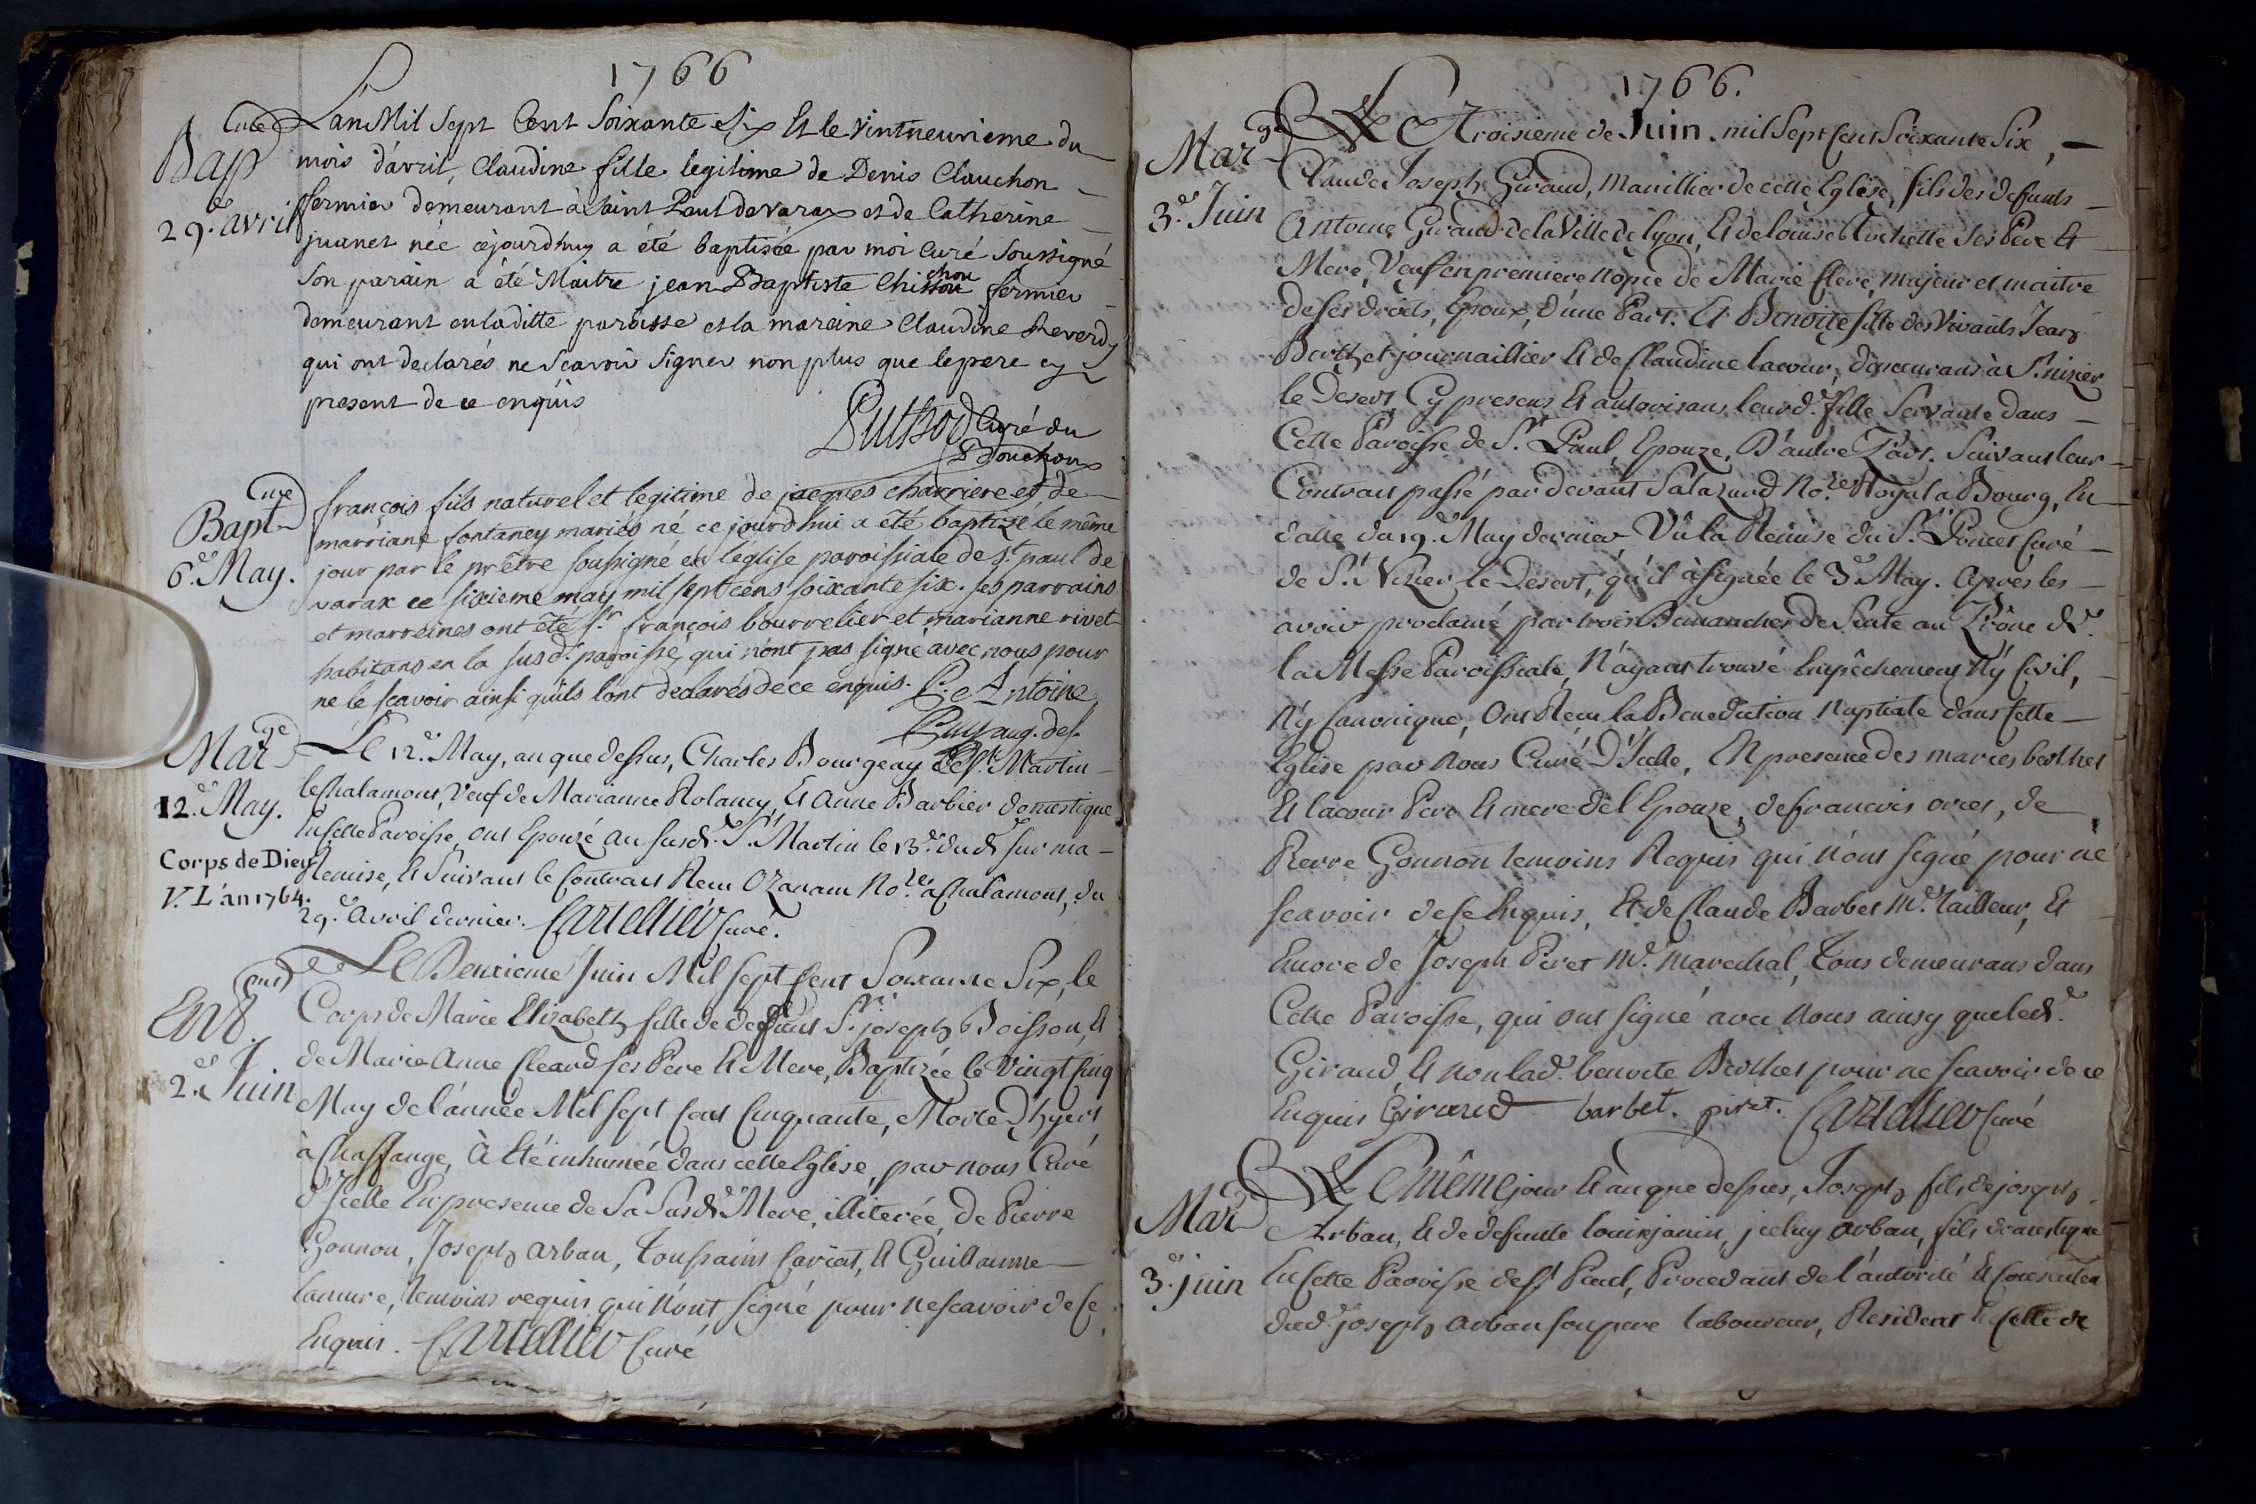 1766
Cure
Bap
29.e avril
L'an Mil Sept Cent Soixante Six Et le vintneuvieme du
mois d'avril, Claudine fille legitime de Denis Clauchon
fermier demeurant à saint Paul de varax et de Catherine
juanet née cejourdhuy a été baptisée par moi Curé Soussigné
Son parain a été Maitre jean Baptiste Chichou fermier
demeurant en laditte paroisse et la mareine Claudine Reverdy
qui ont declarés ne Scavoir Signer non plus que le pere cy
present de ce enquis
Puthod Curé du
Douchoux
Bapt
6.e May.
françois fils naturel et legitime de jacques charriere et de
marriane fontaney mariés né ce jourd'hui a été baptizé le même
jour par le prêtre soussigné en l'église paroissiale de St paul de
varax ce sixieme may mil sept cens soixante six. ses parrains
et marreines ont été Sr. françois bourrelier et marianne rivet
habitans en la susd.e paroisse, qui n'ont pas signé avec nous pour
ne le scavoir ainsi qu'ils l'ont declarés de ce enquis. P. e Antoine
aug. des.
Mar ge
12.e May.
Le 12.e May, an que dessus, Charles Bourgeay de St. Martin
le Chalamont, veuf de Marianne Rolancy, Et Anne Barbier domestique
En Cette Paroisse, ont Epouzé au susd.e St. Martin le 13.e dud.e sur ma
Corps de Dieu
V. L'an 1764.
Remise, Et Suivant le Contract Reçu Ozanam No.re à Chalamont, du
29.e Avril dernier. Cartellier Curé.
Ent
2.e Juin
Le Deuxieme Juin Mil Sept Cent Soixante Six, le
Corps de Marie Elizabeth fille de deffunt Sr. joseph Boisson, Et
de Marie Anne Cleard ses Pere Et Mere, Baptizée le Vingt Cinq
May de l'année Mil Sept Cent Cinquante, Morte D'hyert
à Chaffange, à Eté inhumée dans cette Eglise, par nous Curé
D'Jcelle En presence de Sa Susd.e Mere, illiterée, de Pierre
Gonnon, Joseph Arban, Toussaint Cariat, Et Guillaume
Lamure, temoins requis qui n'ont signé pour ne scavoir de ce
Enquis. Cartellier Curé
1766.
Mar ge
3.e Juin
Le Troisieme de Juin mil Sept Cent Soixante Six,
Claude Joseph Giraud, Manillier de cette Eglise, fils des deffunts
Antoine Giraud de la Ville de Lyon, Et de louise Clochette Ses Pere Et
Mere, Veuf en premiere nopce de Marie Clere, majeur et maitre
de ses droits, Epoux, d'une Part. Et Benoite fille des Vivants Jean
Berthet journaillier Et de Claudine lacour, demeurans à St. nizier
le Desert, Cy presens Et autorisans leurd.e fille Servante dans
Cette Paroisse de St. Paul, Epouze, D'autre Part. Suivant leur
Contract passé par devant Salazard No.re Royal a Bourg, En
datte du 19.e May dernier Vû la Remise du Sr. Poncet Curé
de St. Nizier le Desert, qu'il à signée le 3.e May. Apres les
avoir proclamé par trois Dimanches de Suite au Prône de
la Messe Paroissiale, N'ayant trouvé Empêchement N'y Civil,
N'y Canonique, Ont Reçu la Benediction Nuptiale dans Cette
Eglise par nous Curé D'Jcelle, En presence des mariés berthet
Et lacour Pere Et mere de l'Epouze, de francois ores, de
Pierre Gonnon temoins Requis qui n'ont signé pour ne
scavoir de ce Enquis, Et de Claude Barbet Md. Tailleur, Et
Encore de Joseph Piret Md. Marechal, Tous demeurans dans
Cette Paroisse, qui ont signé avec nous ainsy que led.
Giraud, Et non lad.e benoite Berthet pour ne scavoir de ce
Enquis Giraud barbet. piret. Cartellier Curé
Mar ge
3.e juin
Le même jour Et an que dessus, Joseph fils de joseph
Arban, Et de defunte louise janin, jceluy Arban, fils domestique
En Cette Paroisse de St. Paul, Procedant de l'autorité Et Consente.
dud.e joseph Arban son pere laboureur, Resident En Celle de